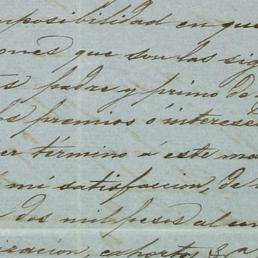 imposibilidad en que
ones que son las sig
padre y primo de
los premios ó interese
er término á este ma
mi satisfaccion, de
dos mil pesos al